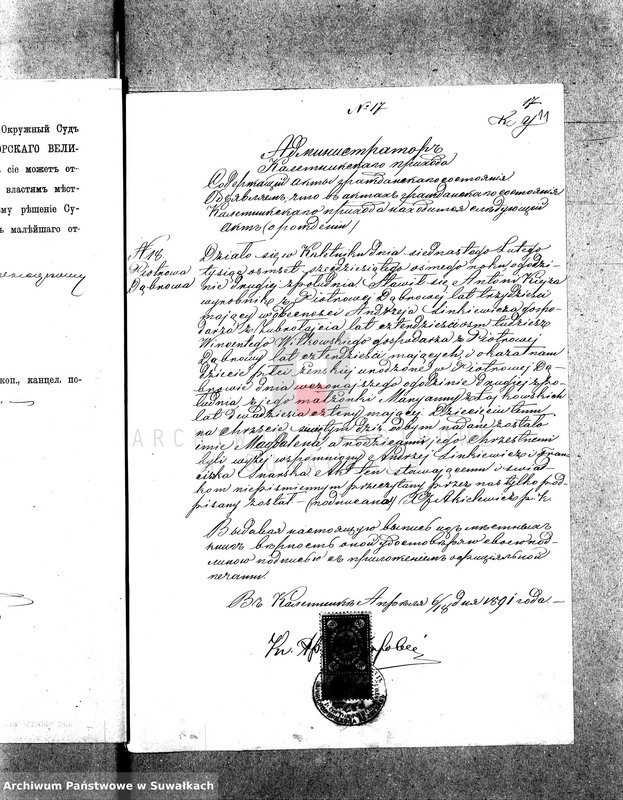 Окружный Судъ
ОРСКАГО ВЕЛИ-
сіе можетъ от-
властямъ мѣст-
му рѣшеніе Су-
малѣйшаго от-
коп., канцел. по-
№ 17
17
Администраторъ
Калетникскаго прихода
Содержащій Акты гражданскаго состоянія
Объявляетъ что въ актахъ гражданскаго состоянія
Калетникскаго прихода находится слѣдующій
Актъ (о рожденіи)
N 18
Piotrowa
Dąbrowa
Działo się w Kaletniku dnia siednastego Lutego
tysiąc ośmset sześćdziesiątego ósmego roku o godzi-
nie drugiej z południa Stawił się Antoni
wyrobnik z Piotrowej Dąbrowej lat trzydzieści
mający w obecności Andrzeja Sinkiewicza gospo-
darza z lat czterdzieści ośm tudzież
Wincentego Witkowskiego gospodarza z Piotrowej
Dąbrowy lat czterdzieści mających, i okazał nam
dziecie płci żeńskiej urodzone w Piotrowej Dą-
browie dnia wczorajszego o godzinie drugiej z po-
łudnia z jego małżonki Maryanny z
lat dwadzieścia cztery mającej. Dziecięciu temu
na Chrzcie świętym dziś odbytym nadane zostało
imie Magdalena, a rodzicami jego Chrzestnemi
byli wyżej wspomniony Andrzej Sinkiewicz i Fran-
ciszka Akt ten stawającemu i świad-
kom niepiśmiennym przeczytany przez nas tylko pod-
pisany został (podpisano) X Akielewicz p. k.
Выдавая настоящую выпись изъ мѣстныхъ
книгъ вѣрность оной удостовѣряю своеюпод-
линою подписью съ приложеніемъ оффиціальной
печати.
Въ Калетникѣ Апрѣля 6/18 дня 1891 года
Кс.
Archiwum Państwowe w Suwałkach